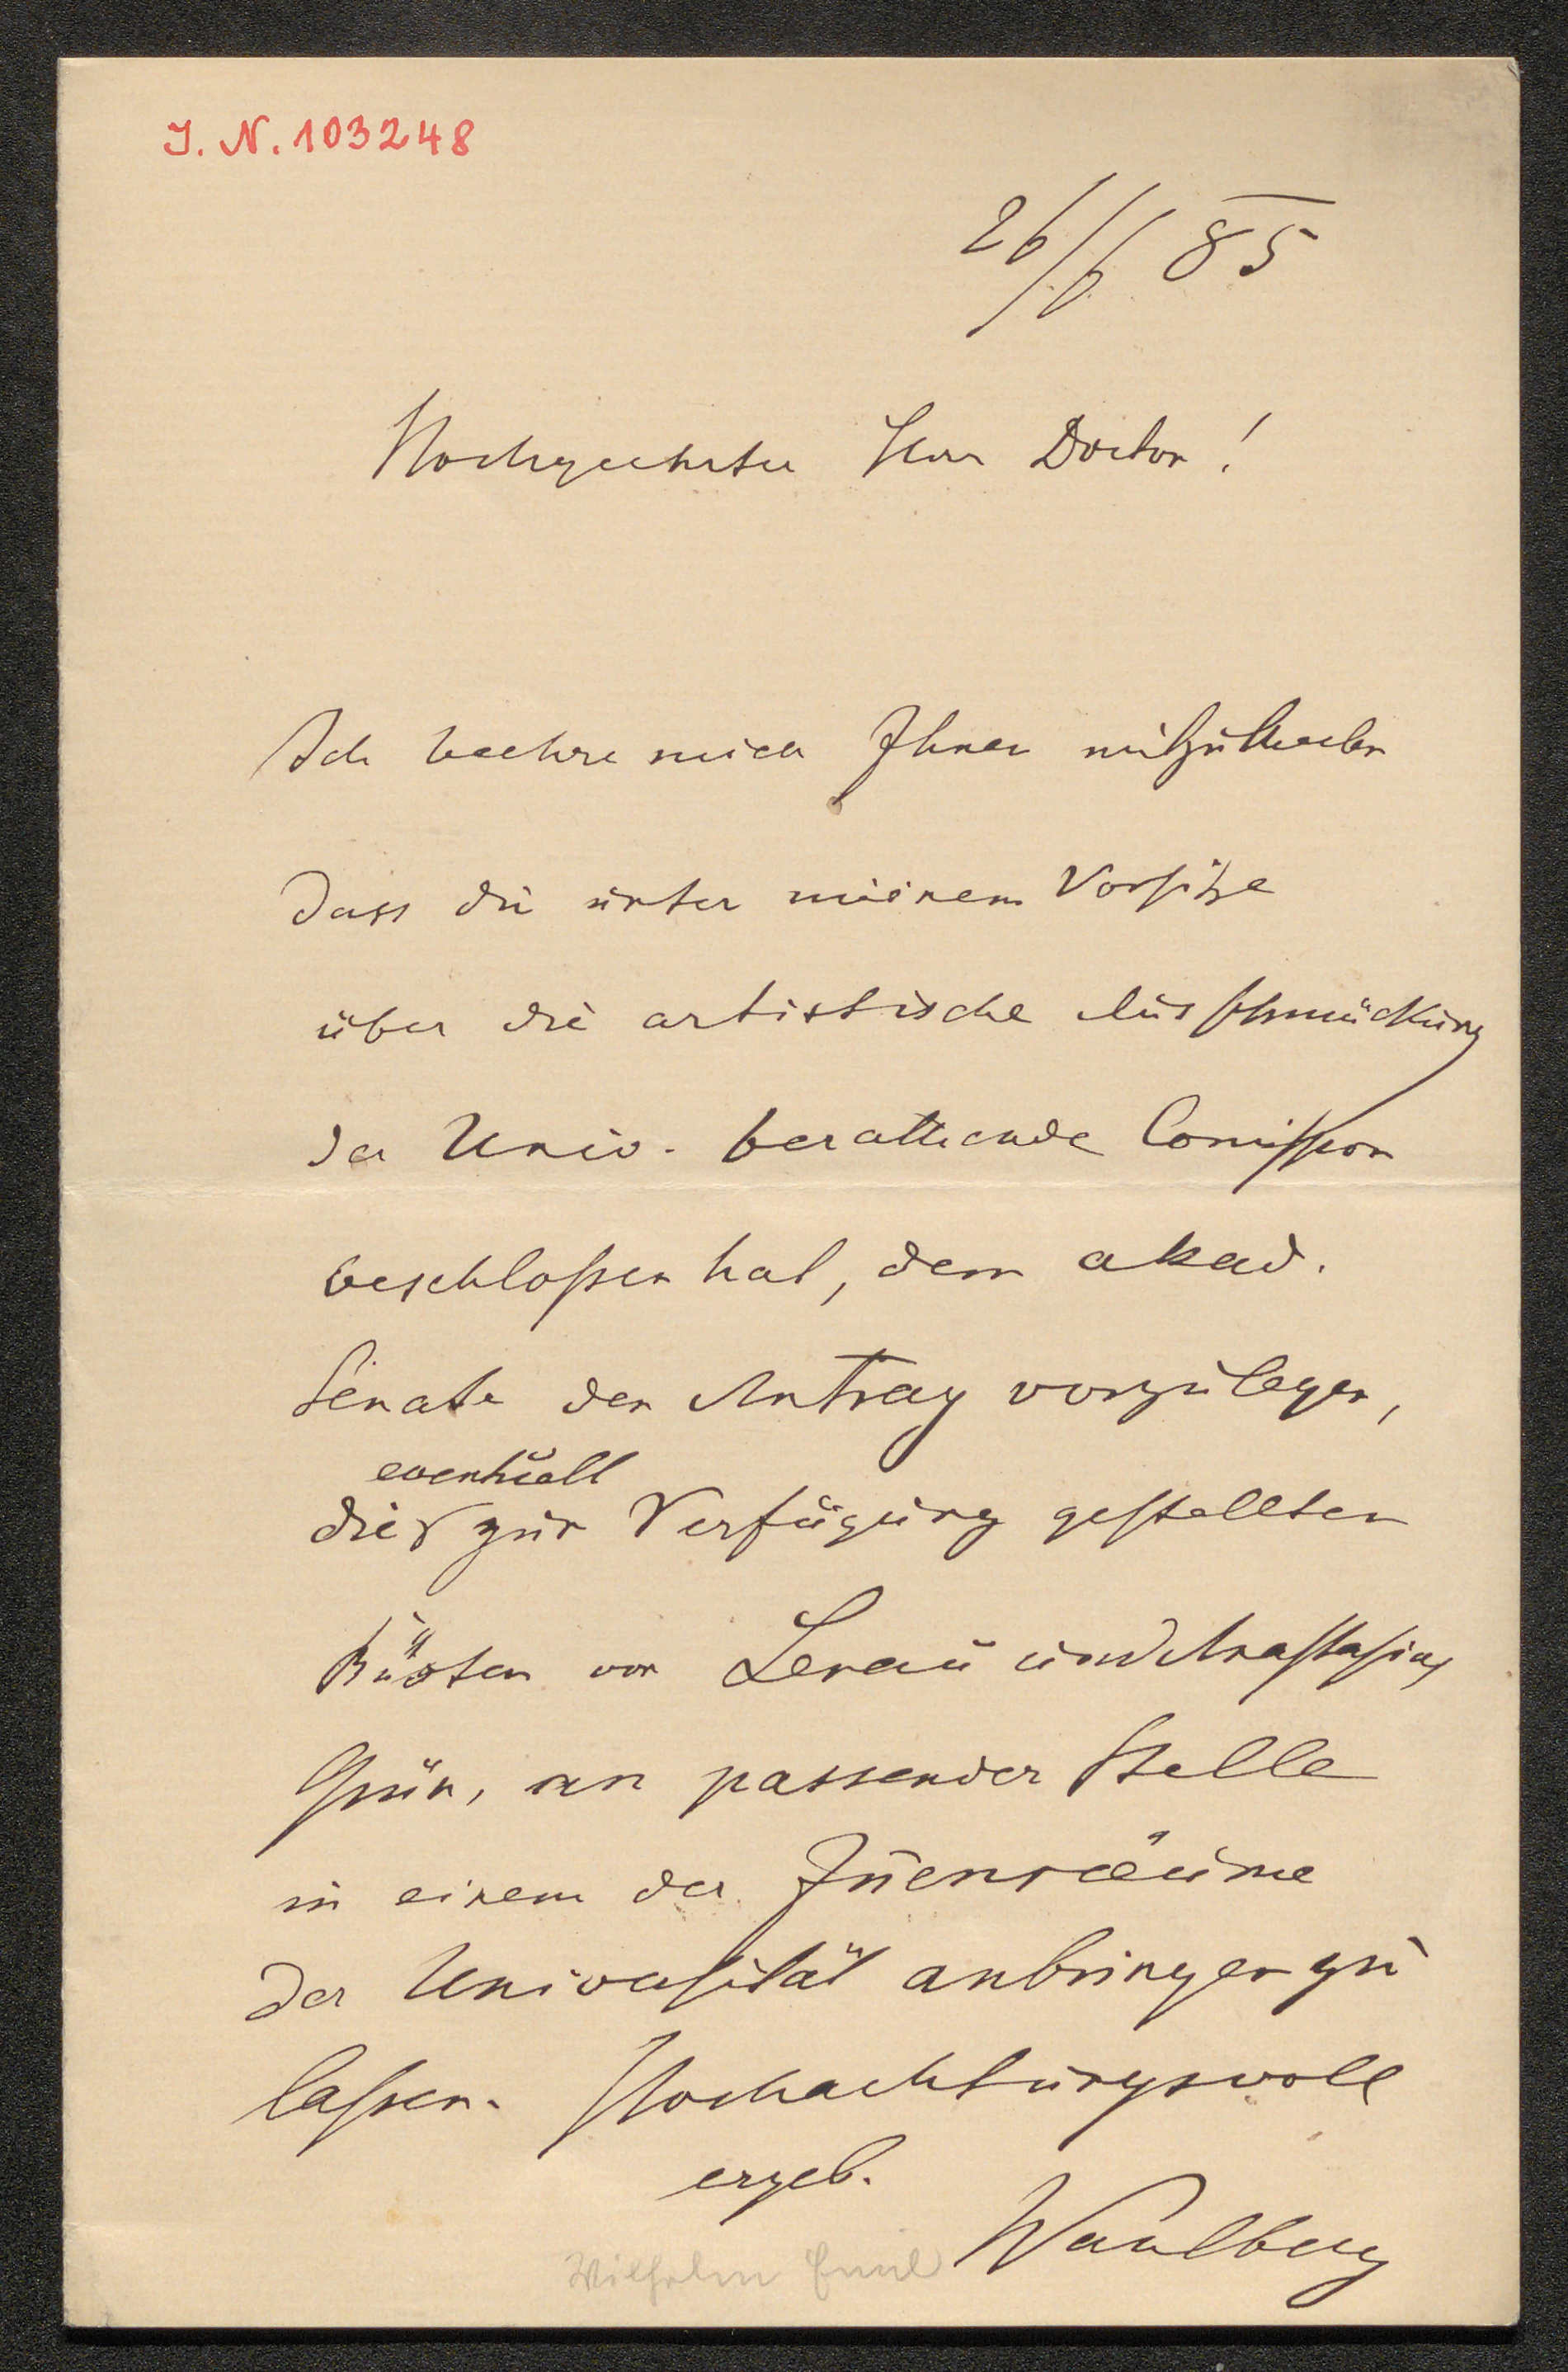 J. N. 103248
26/6 85
Hochgeehrter Herr Doctor!
Ich beehre mich Ihnen mitzutheilen
dass die unter meinem Vorsitze
über die artistische Ausschmückung
der Univ. berathende Comission
beschloßen hat, dem akad.
Senate den Antrag vorzulegen,
eventuell
die zur Verfügung gestellten
Büsten von Lenau und Anastasius
Grün, an passender Stelle
in einem der Iñenräume
der Universität anbringen zu
laßen. Hochachtungsvoll
ergeb.
Wahlberg
Wilhelm Emil